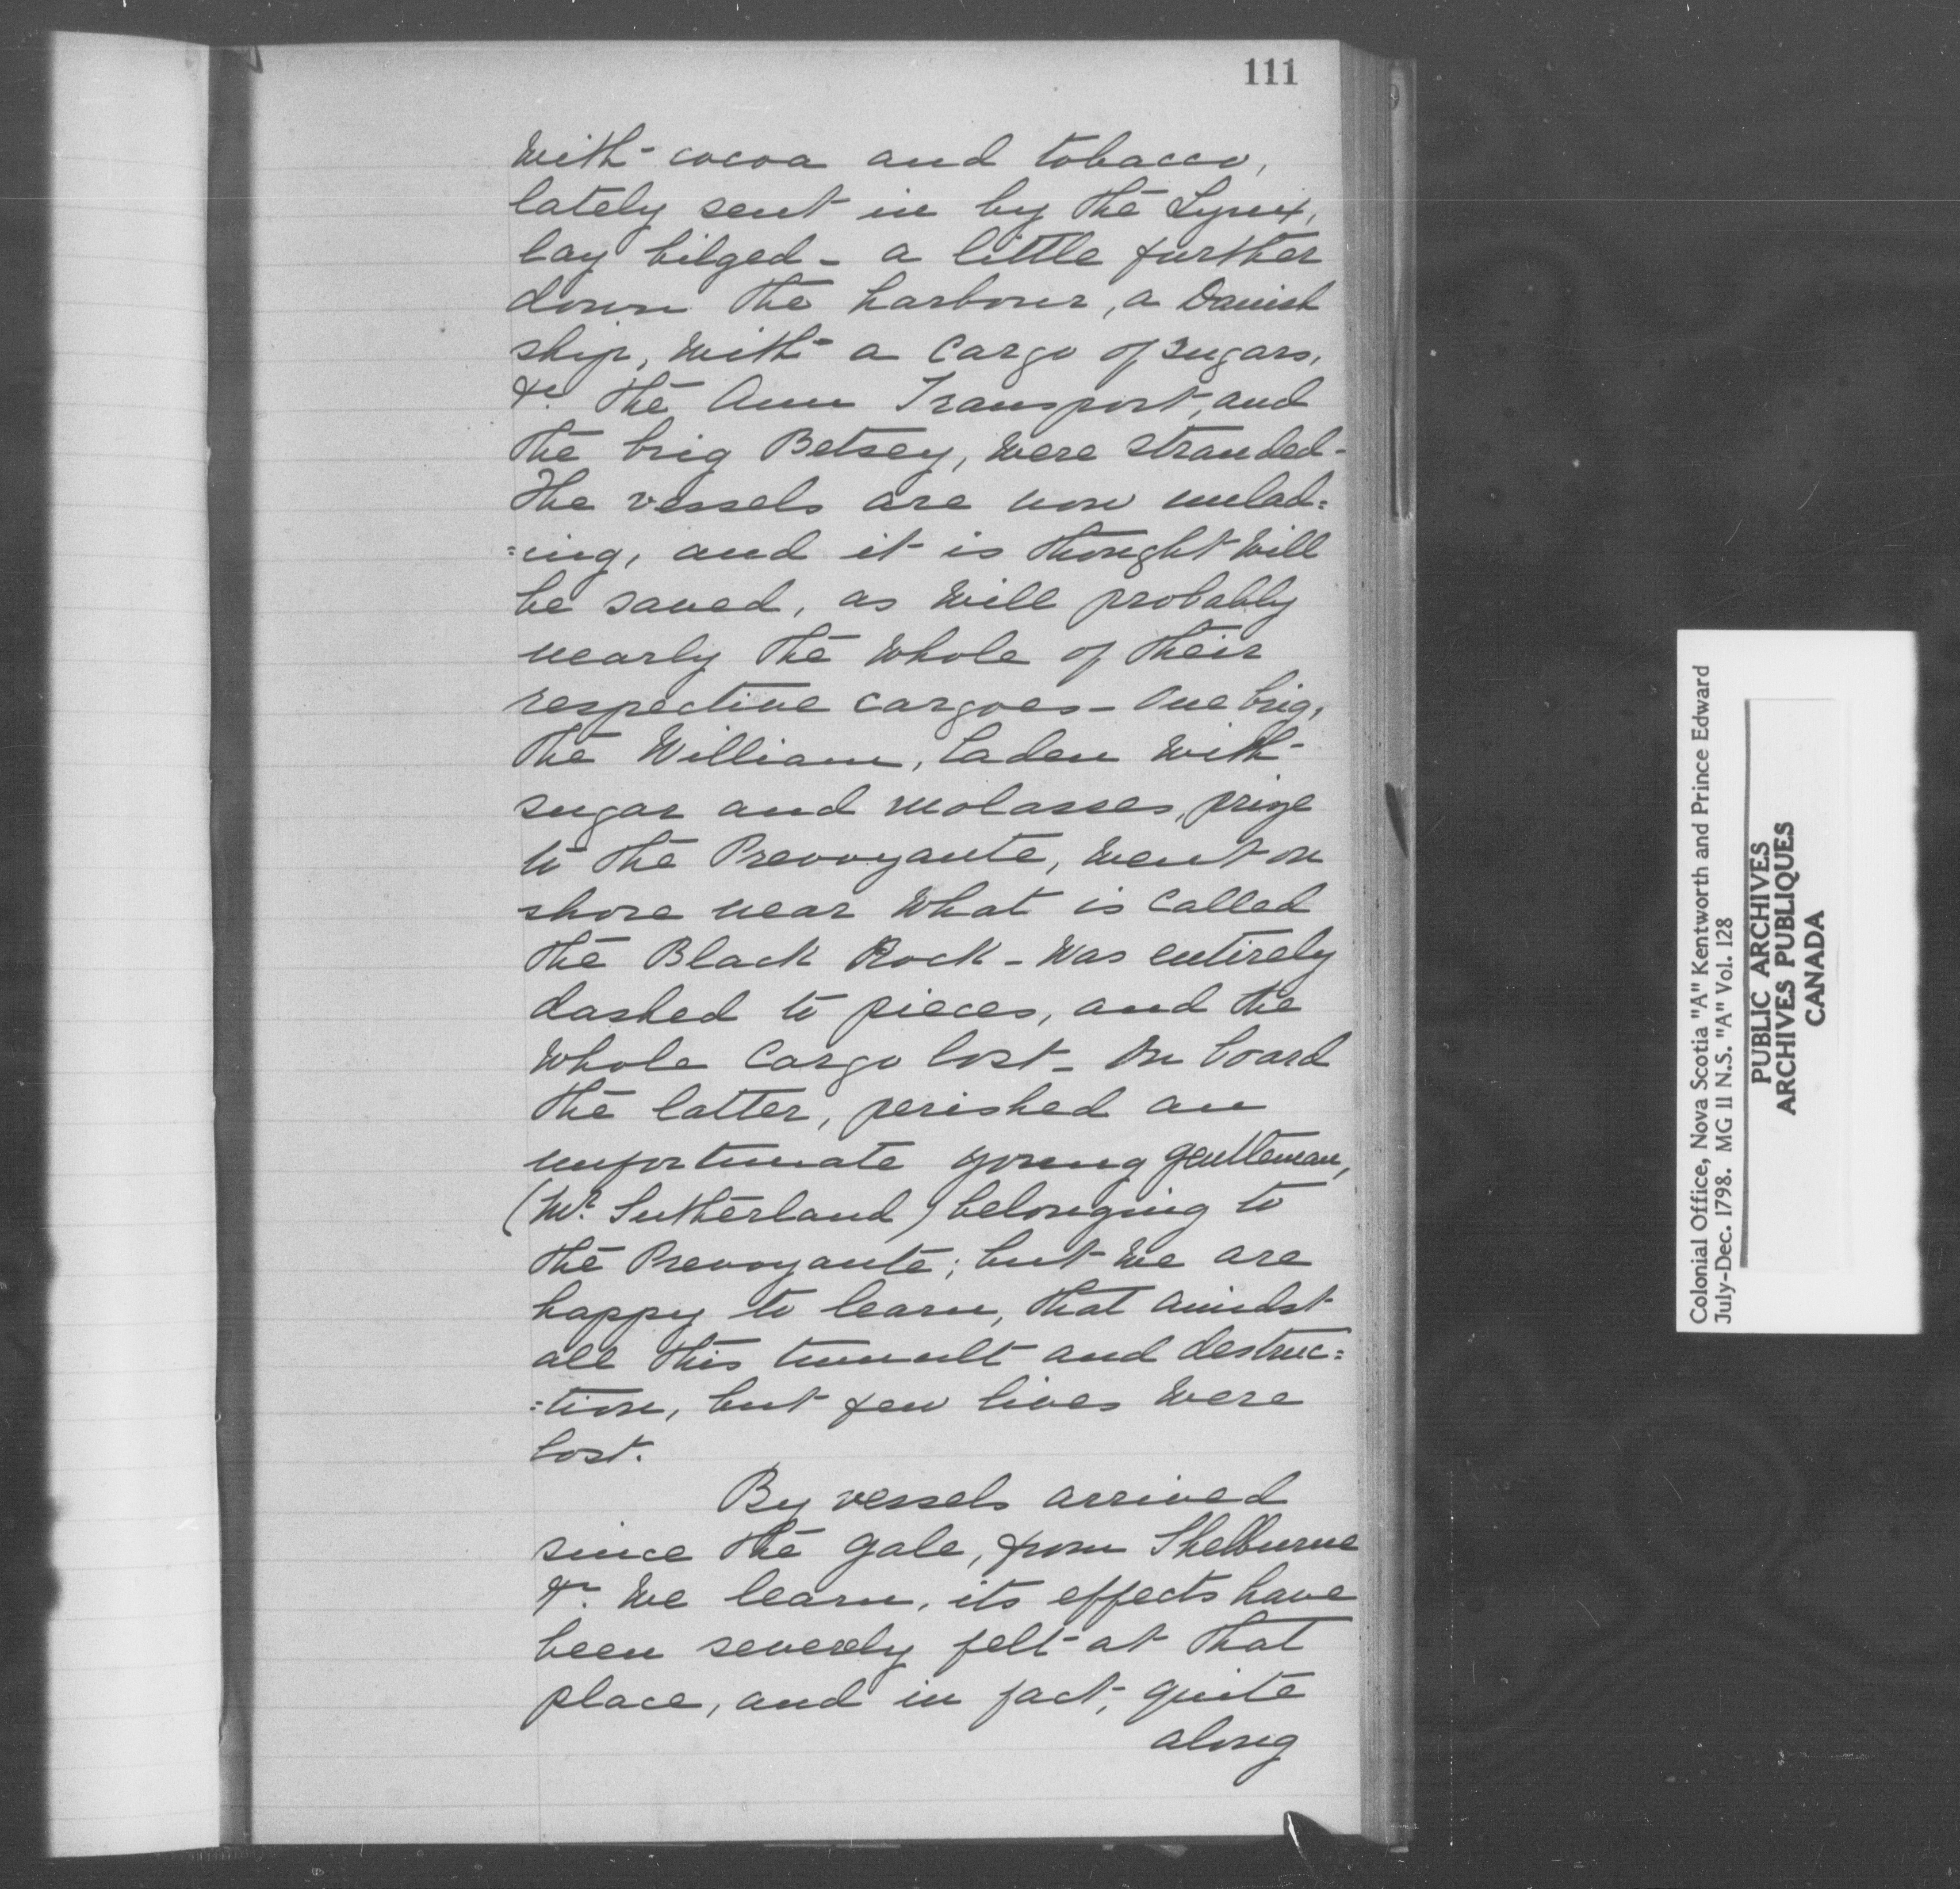 111
with cocoa and tobacco,
lately sent in by the Lynx,
lay bilged - a little further
down the harbour, a Danish
ship, with a cargo of sugars,
&c. the Ann Transport, and
the brig Betsey, were stranded -
The vessels are now unlad=
=ing, and it is thought will
be saved, as will probably
nearly the whole of their
respective cargoes - One brig,
the William, laden with
sugar and molasses, prize
to the Prevoyante, went on
shore near what is called
the Black Rock - was entirely
dashed to pieces, and the
whole cargo lost - On board
the latter, perished an
unfortunate young gentleman,
(Mr. Sutherland) belonging to
the Prevoyante; but we are
happy to learn, that amidst
all this tumult and destruc=
=tion, but few lives were
lost.
By vessels arrived
since the gale, from Shelburne
&c. we learn, its effects have
been severely felt at that
place, and in fact, quite
along
Colonial Office, Nova Scotia "A" Kentworth and Prince Edward
July-Dec. 1798. MG 11 N.S. "A" Vol. 128
PUBLIC ARCHIVES
ARCHIVES PUBLIQUES
CANADA